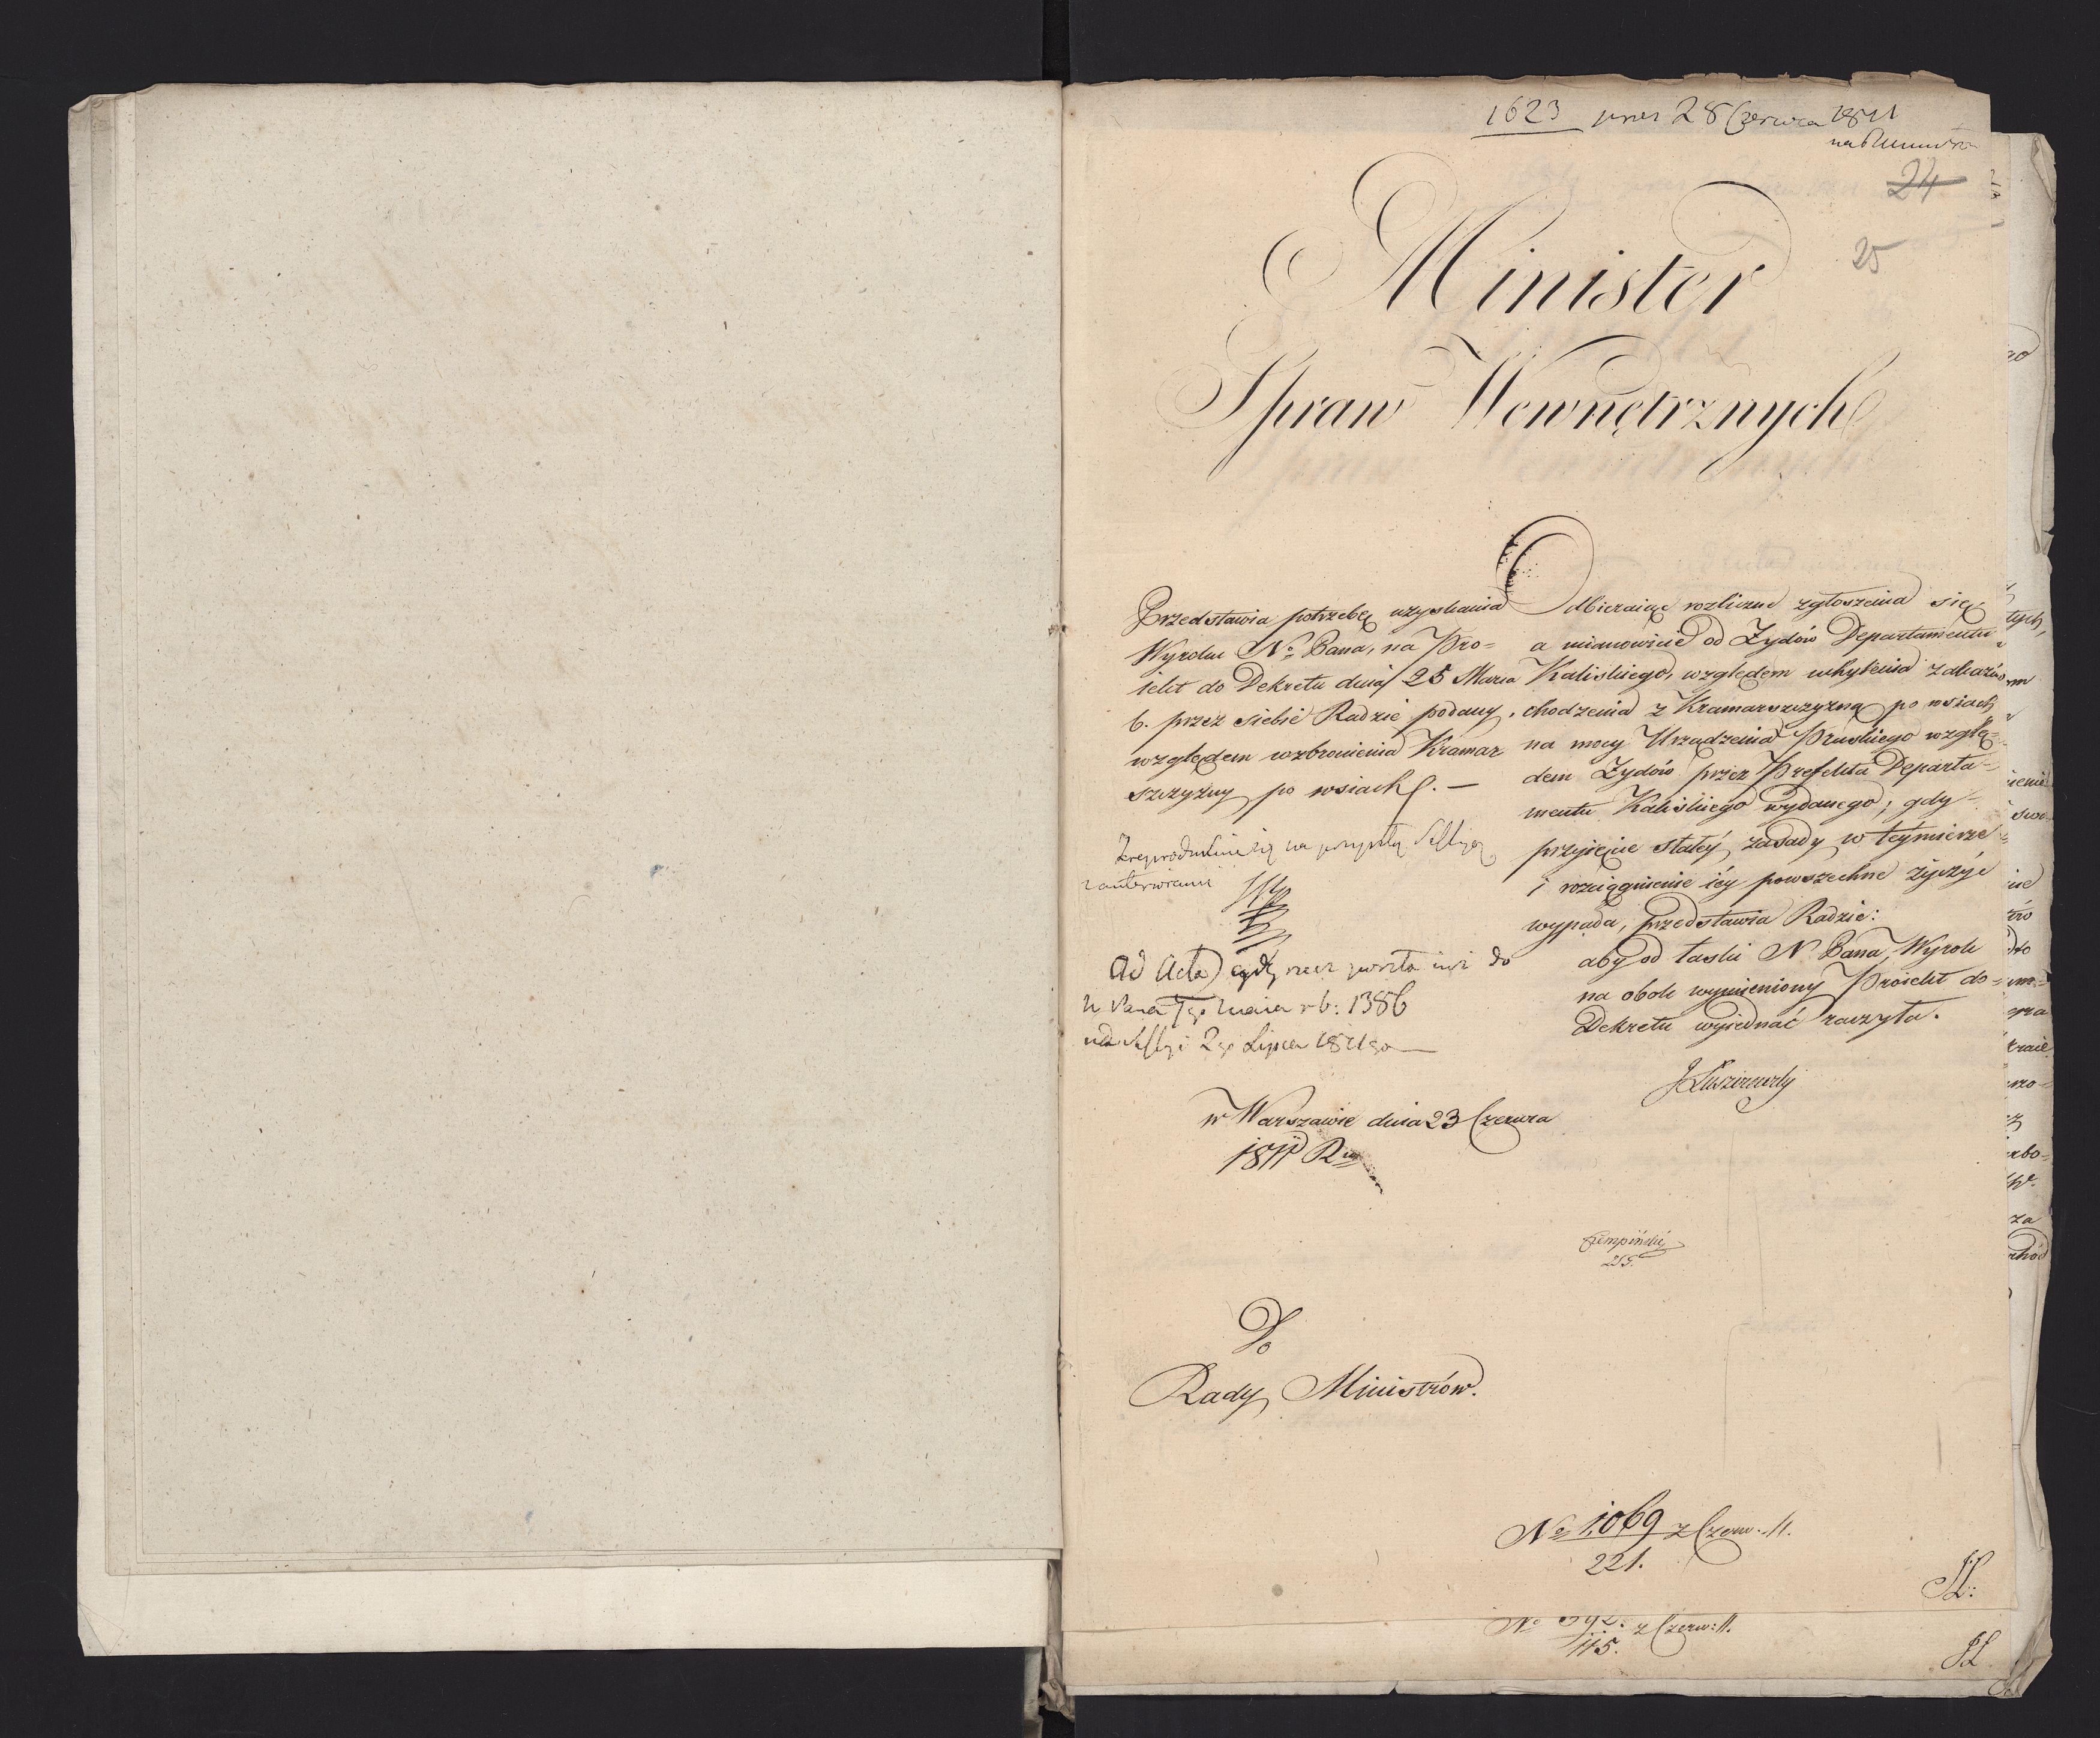 1623 pres 28 Czerwca 1811
24
25
Minister
Spraw Wewnętrznych
Przedstawia potrzebę uzyskania
Wyroku No Pana, na Pro=
iekt do Dekretu dnia 25 Marca
b. przez siebie Radzie podany,
względem wzbronienia Kramar
szczyzny po wsiach. —
Odbieraiąc rozliczne zgłoszenia się
a mianowicie od Żydów Departamentu
Kaliskiego, względem uchylenia zakazów
chodzenia z Kramarszczyzną po wsiach
na mocy Urządzenia Pruskiego wzglę=
dem Żydów przez Prefekta Departa=
mentu Kaliskiego wydanego; gdy
przyięcie stałéy zasady w téymierze
i rozciągnienie iéy powszechne życzyć
wypada, przedstawia Radzie:
aby od łaski N Pana, Wyrok
na obok wymieniony Proiekt do=
Dekretu wyiednać raczyła.
JŁuszczewski
na przyszłą Sessyą
Ad Acta gdyż rzecz poszła iuż do
N Pana 7go Maia rb: 1386
na Sessyi 2go Lipca 1811go
w Warszawie dnia 23 Czerwca
1811 Ru
Czempiński
255.
Do
Rady Ministrów.
No 1,069 z Czerw. 11.
221.
SL:
No z Czerw: 11.
115.
SL